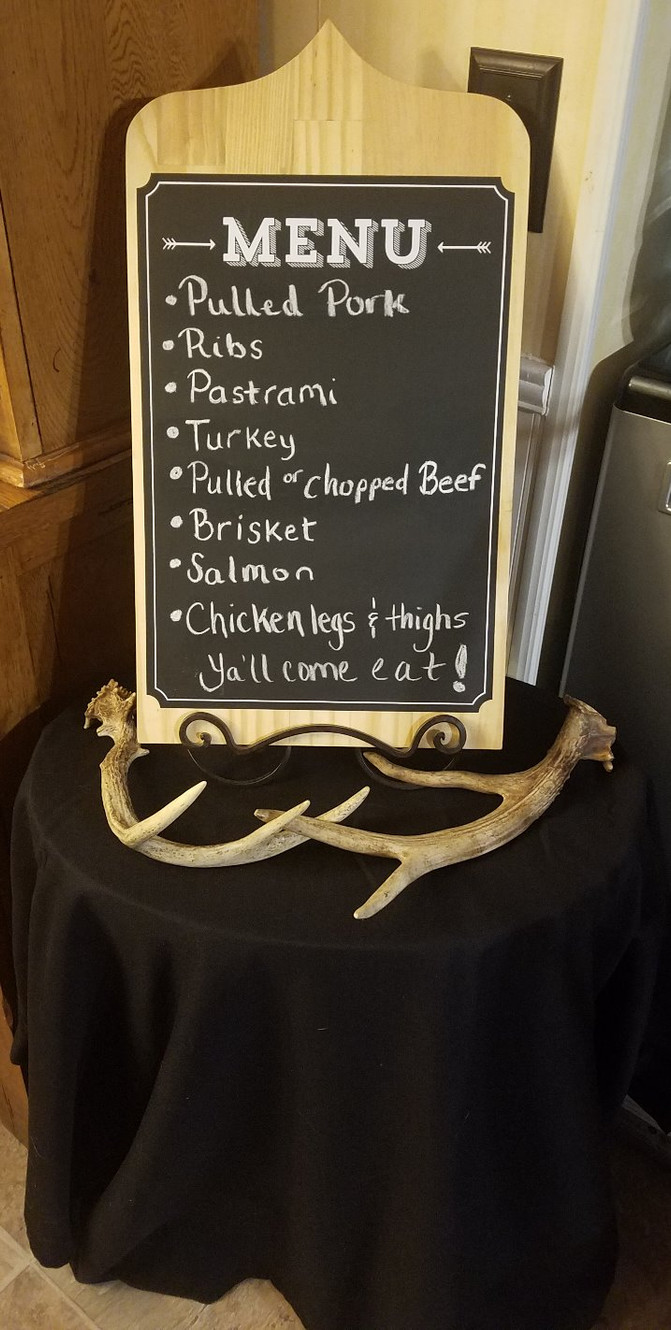 MENU
• Pulled Pork
• Ribs
• Pastrami
• Turkey
• Pulled or chopped Beef
• Brisket
• Salmon
• Chicken legs & thighs
Ya'll come eat!